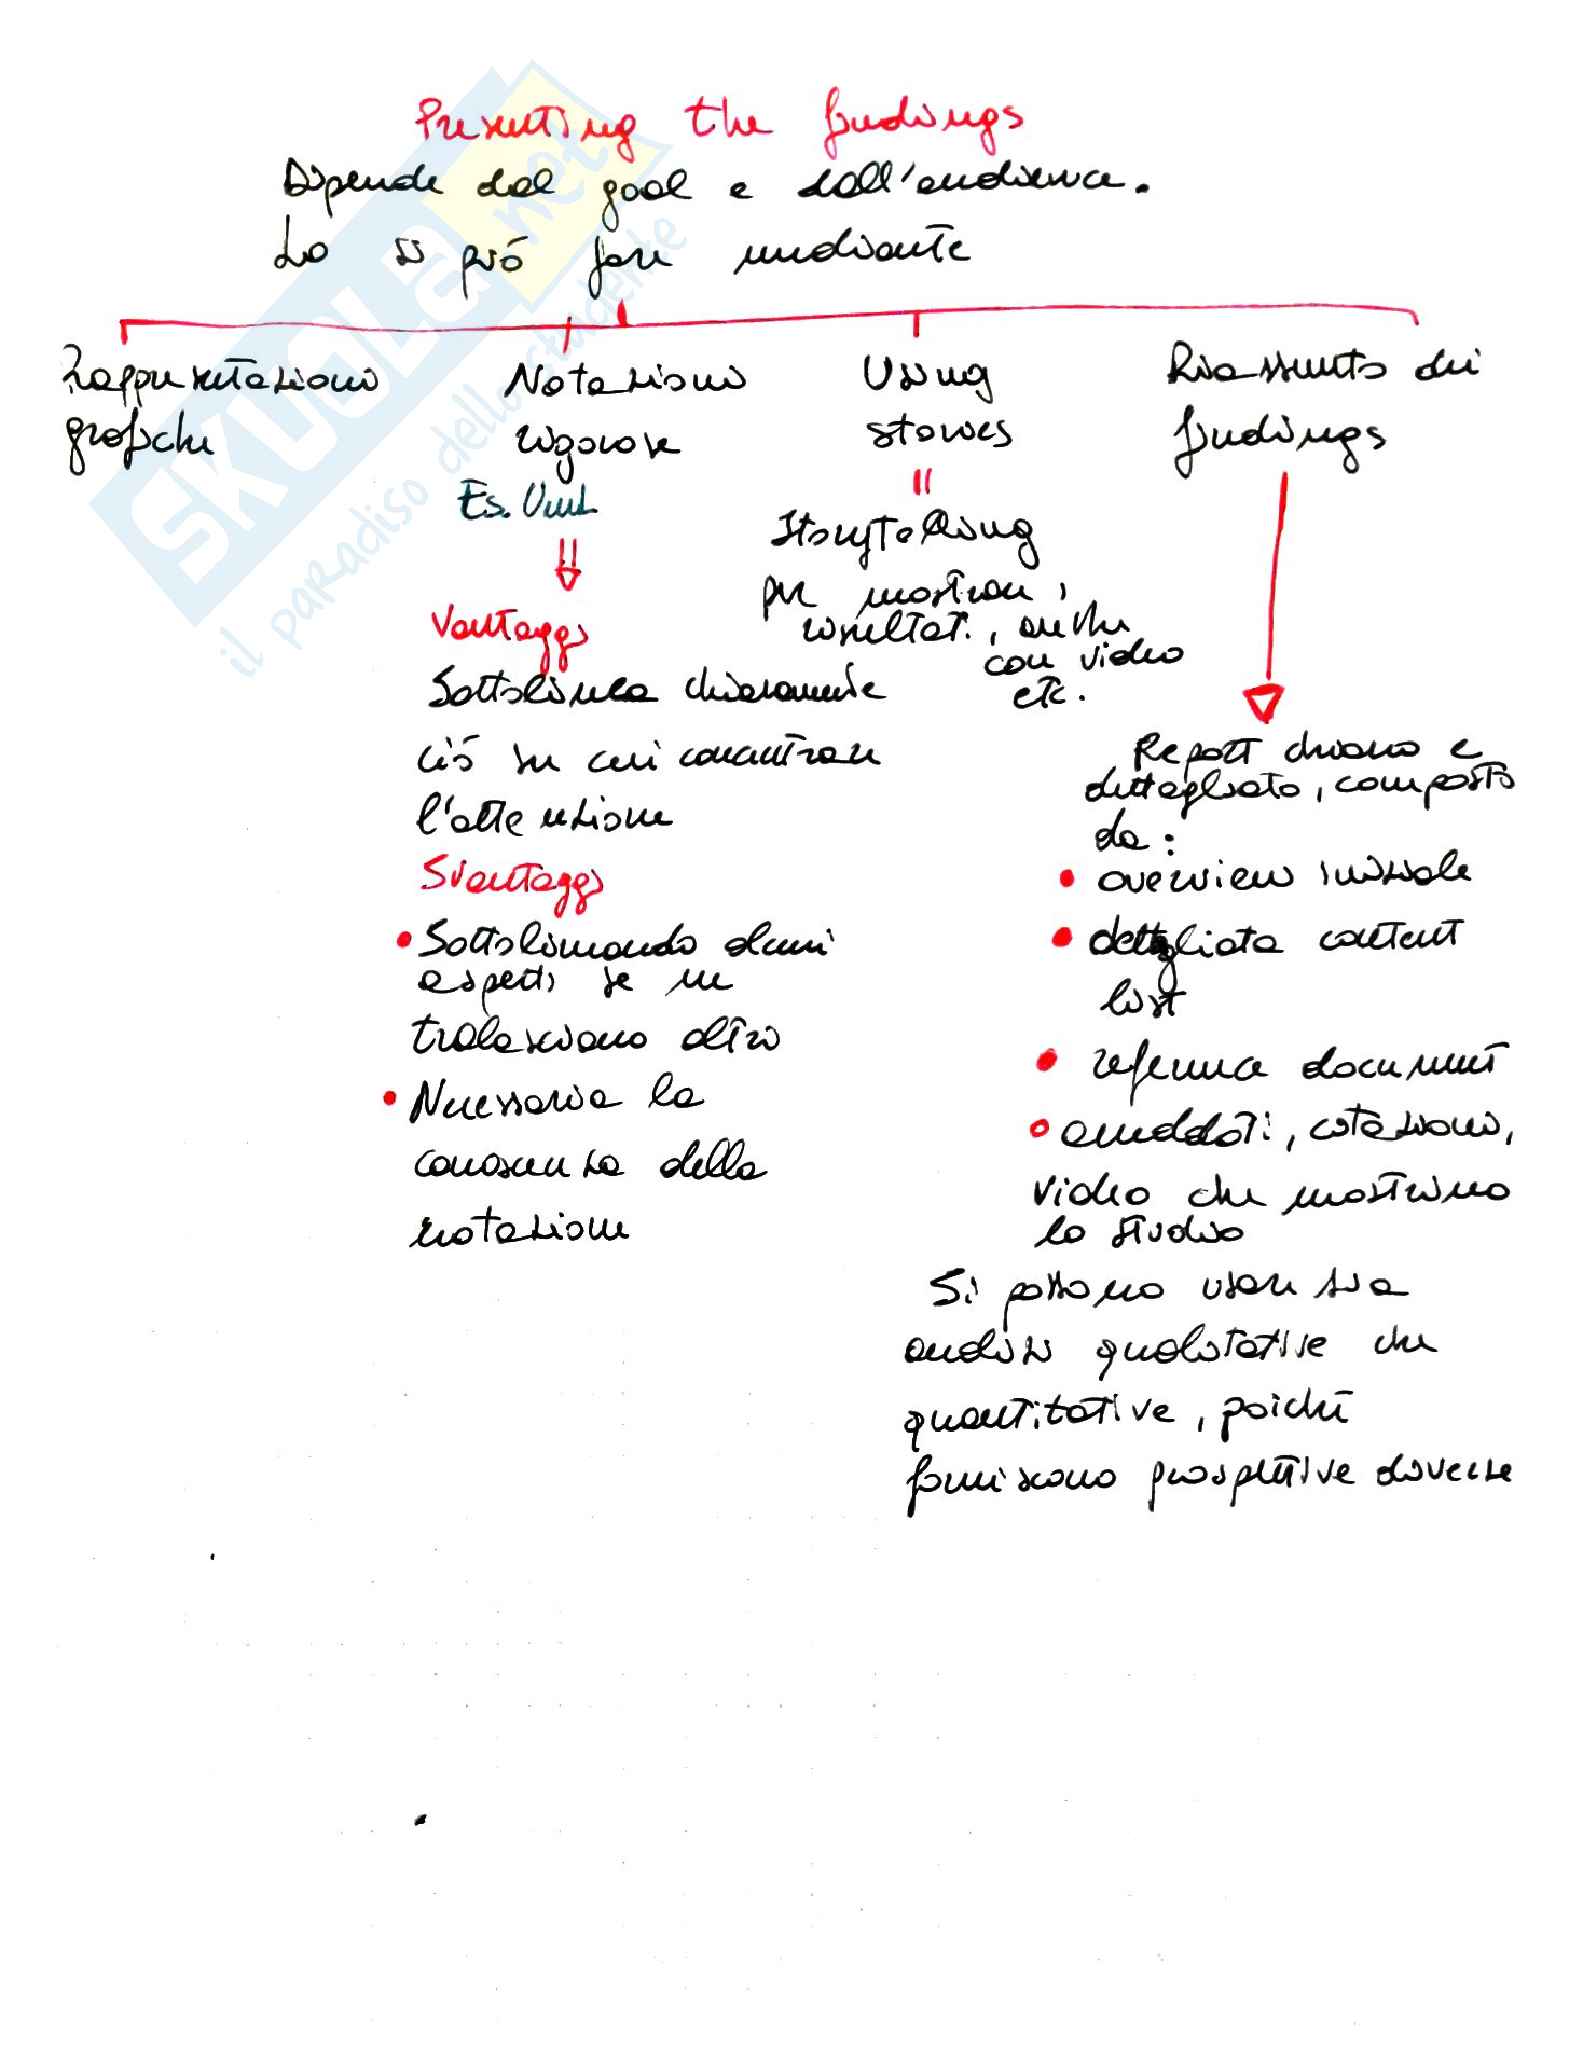 Presenting the findings
Dipende dal goal e dall'audience.
Lo si può fare mediante
Rappresentazioni
grafiche
Notazioni
rigorose
Es. Uml
Vantaggi
Sottolinea chiaramente
ciò su cui concentrare
l'attenzione
Svantaggi
• Sottolineando alcuni
aspetti se ne
tralasciano altri
• Necessaria la
conoscenza della
notazione
Using
stories
Storytelling
per mostrare i
risultati, anche
con video
etc.
Riassunto dei
findings
Report chiaro e
dettagliato, composto
da:
• overview iniziale
• dettagliata content
list
• reference document
• aneddoti, citazioni,
video che mostrino
lo studio
Si possono usare sia
analisi qualitative che
quantitative, poiché
forniscono prospettive diverse
SKUOLA.net
il paradiso dello studente